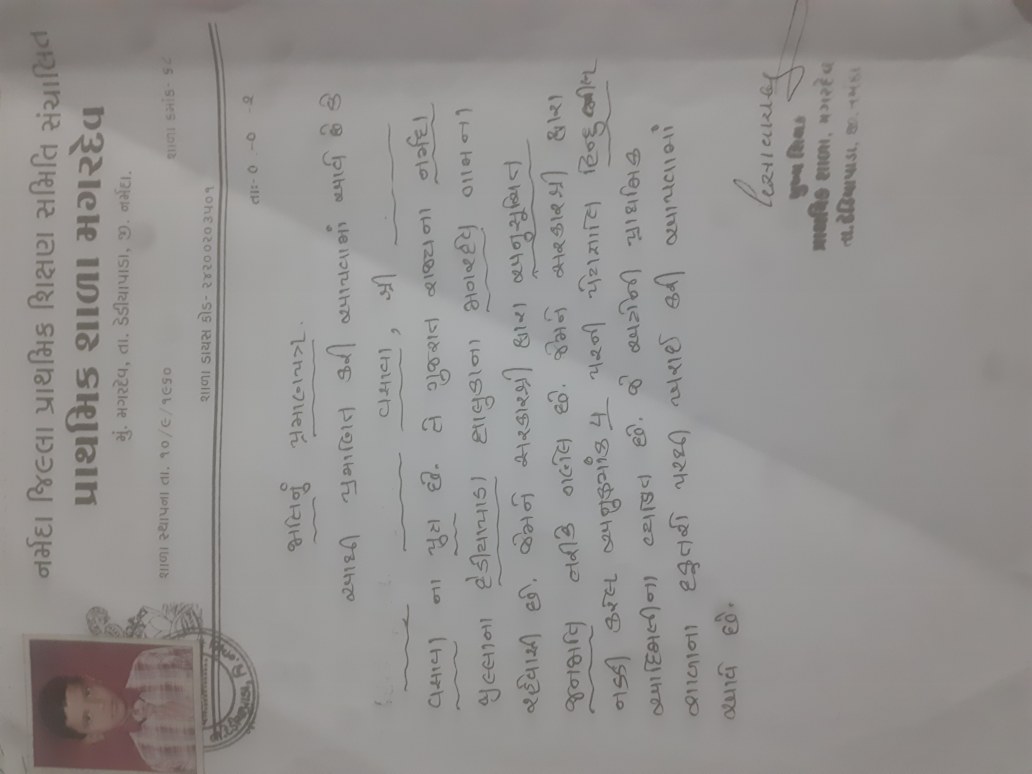 નર્મદા જિલ્લા પ્રાથમિક શિક્ષણ સમિતિ સંચાલિત
પ્રાથમિક શાળા મગરદેવ
મું. મગરદેવ, તા. ડેડીયાપાડા, જી. નર્મદા.
શાળા સ્થાપના તા. ૧૦/૯/૧૯૬૦ શાળા ક્રમાંક- ૬૮
શાળા ડાયસ કોડ- ૨૪૨૦૦૨૦૩૫૦૧
જાતિનું પ્રમાણપત્ર.
આથી પ્રમાણિત કરી આપવામાં આવે છે કે
વસાવા, શ્રી
વસાવા ના પુત્ર છે. તે ગુજરાત રાજ્યના નર્મદા
જીલ્લાના ડેડીયાપાડા તાલુકાના મગરદેવ ગામના
રહેવાસી છે. જેમને સરકારશ્રી દ્વારા અનુસૂચિત
જનજાતિ તરીકે ગણેલ છે. જેમને સરકારશ્રી દ્વારા
નક્કી કરેલ અનુક્રમાંક ૫ પરની પેટાજાતિ હિન્દુ ભીલ
આદિજાતીના વ્યક્તિ છે. જે અત્રેની પ્રાથમિક
શાળાના દફતરી પરથી ખરાઈ કરી આપવામાં
આવે છે.
મુખ્ય શિક્ષક
પ્રાથમિક શાળા, મગરદેવ
તા. ડેડિયાપાડા, જી. નર્મદા